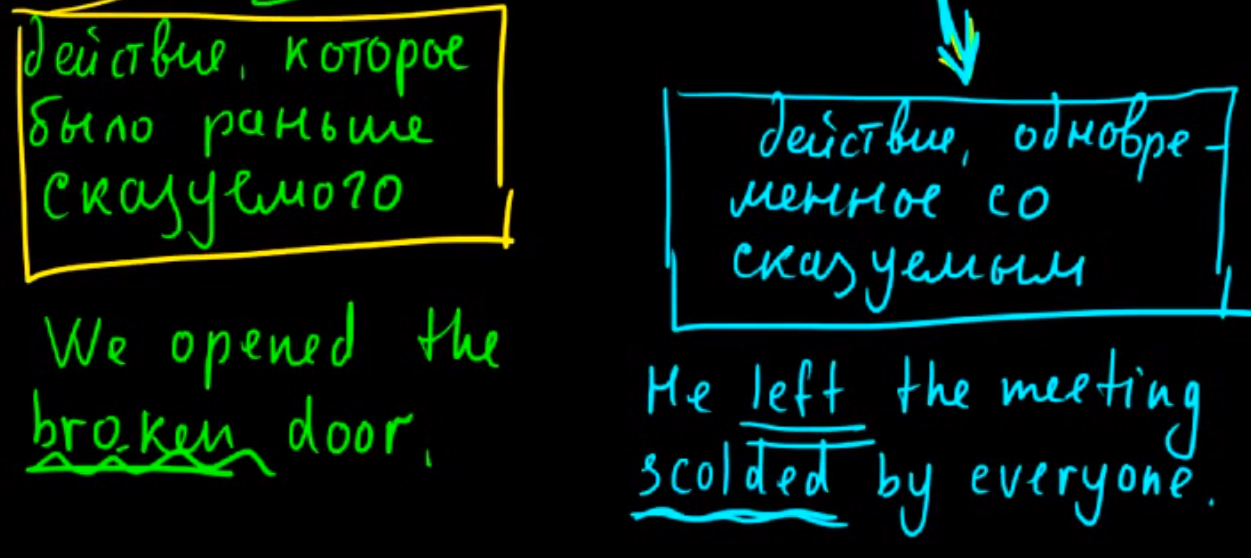 действие, которое
было раньше
сказуемого
We opened the
broken door.
действие, одновре-
менное со
сказуемым
He left the meeting
scolded by everyone.